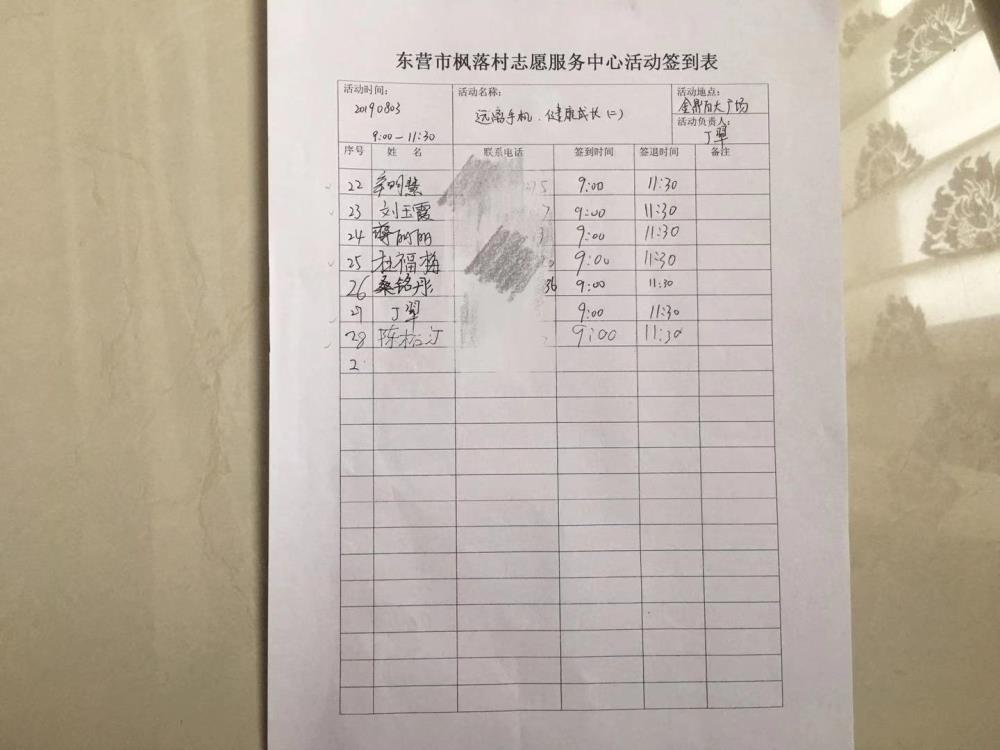 东营市枫落村志愿服务中心活动签到表
活动时间: 活动名称: 活动地点:
20190803 远离手机、健康成长(二) 金鼎百大广场
活动负责人:
9:00-11:30 丁翠
序号 姓 名 联系电话 签到时间 签退时间 备注
22 辛明慧 9:00 11:30
23 刘玉霞 7 9:00 11:30
24 蒋丽丽 9:00 11:30
25 杜福梅 9:00 11:30
26 桑铭彤 36 9:00 11:30
27 丁翠 9:00 11:30
28 陈松汀 9:00 11:30
2